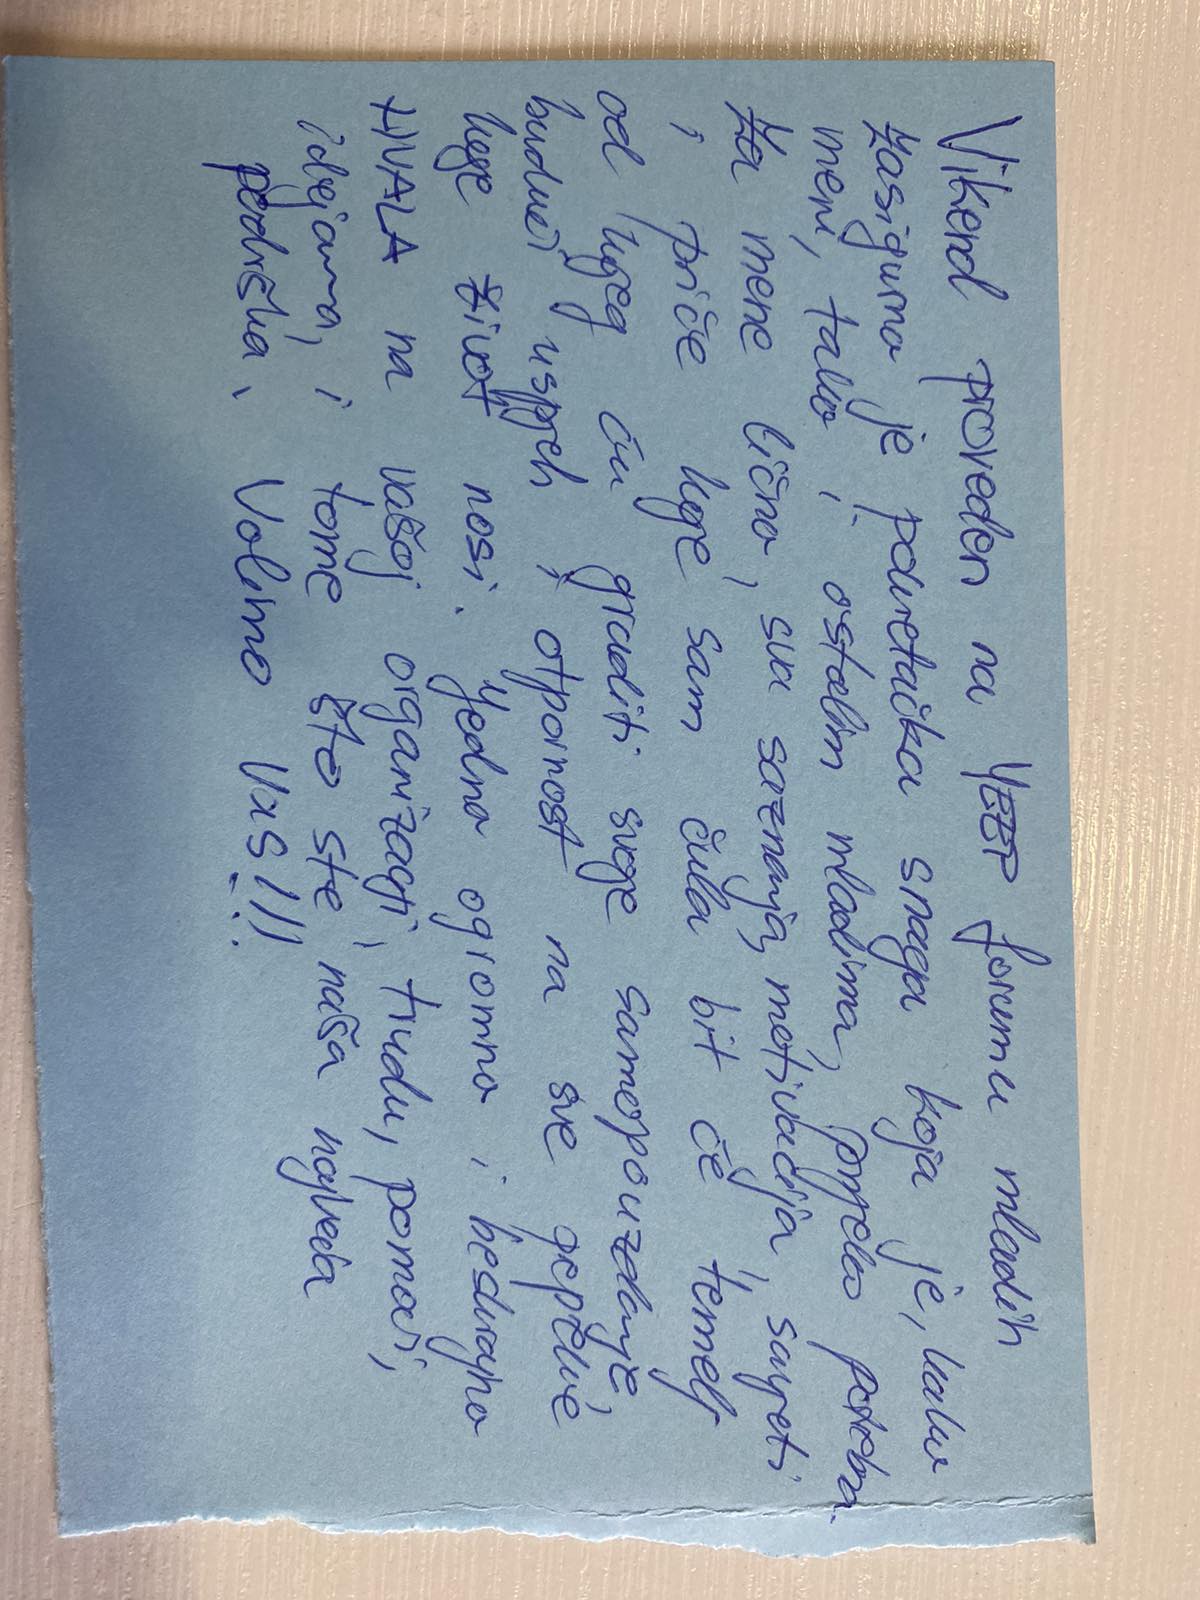 Vikend proveden na YEEP forumu mladih
zasigurno je pokretačka snaga koja je, kako
meni, tako i ostalim mladima, prijeko potrebna.
Za mene lično, sva saznanja, motivacija, savjeti
i priče koje sam čula bit će temelj
od kojeg ću graditi svoje samopouzdanje,
budući uspjeh i otpornost na sve gepřeve
koje život nosi. Jedno ogromno i beskrajno
HVALA na vašoj organizaciji, trudu, pomoći,
idejama, i tome što ste naša najveća
podrška. Volimo vas!!!